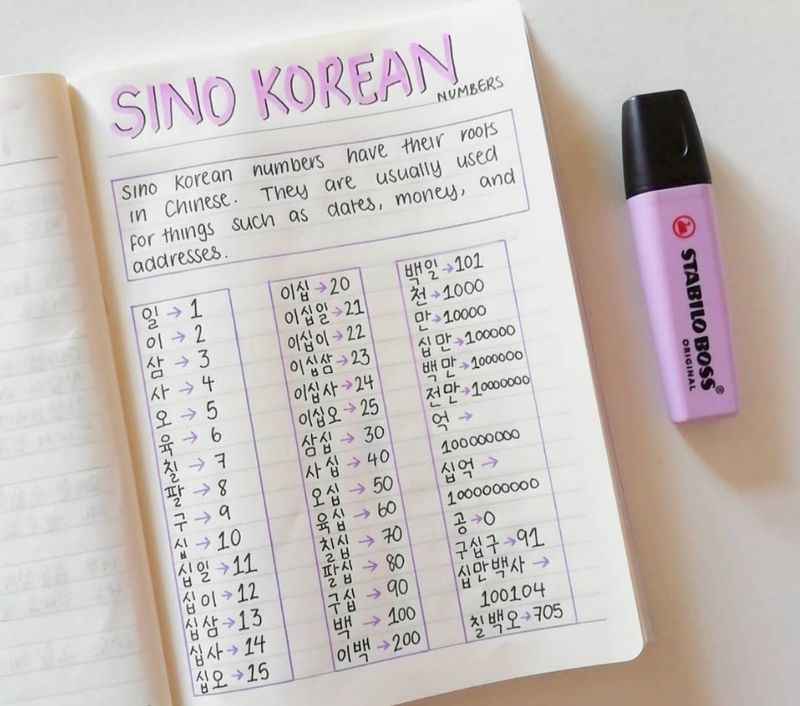 SINO KOREAN
NUMBERS
Sino Korean numbers have their roots
in Chinese. They are usually used
for things such as dates, money, and
addresses.
일 → 1
이 → 2
삼 → 3
사 → 4
오 → 5
육 → 6
칠 → 7
팔 → 8
구 → 9
십 → 10
십일 → 11
십이 → 12
십삼 → 13
십사 → 14
십오 → 15
이십 → 20
이십일 → 21
이십이 → 22
이십삼 → 23
이십사 → 24
이십오 → 25
삼십 → 30
사십 → 40
오십 → 50
육십 → 60
칠십 → 70
팔십 → 80
구십 → 90
백 → 100
이백 → 200
백일 → 101
천 → 1000
만 → 10000
십만 → 100000
백만 → 1000000
천만 → 10000000
억 →
100000000
십억 →
1000000000
공 → 0
구십구 → 91
십만백사 →
100104
칠백오 → 705
STABILO BOSS®
ORIGINAL